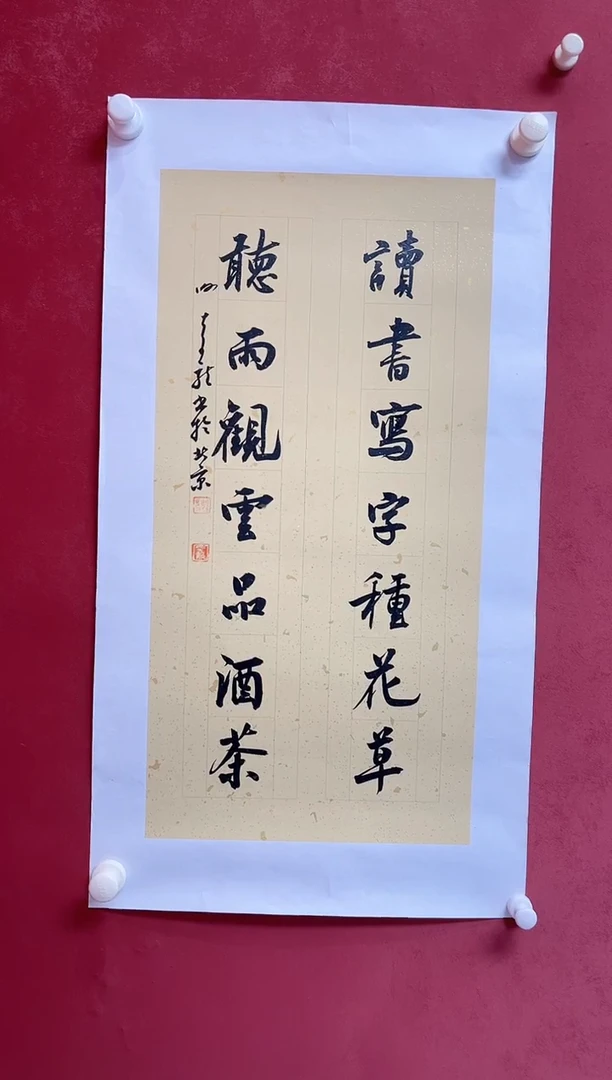 讀書寫字種花草
聽雨觀雲品酒茶
書於北京